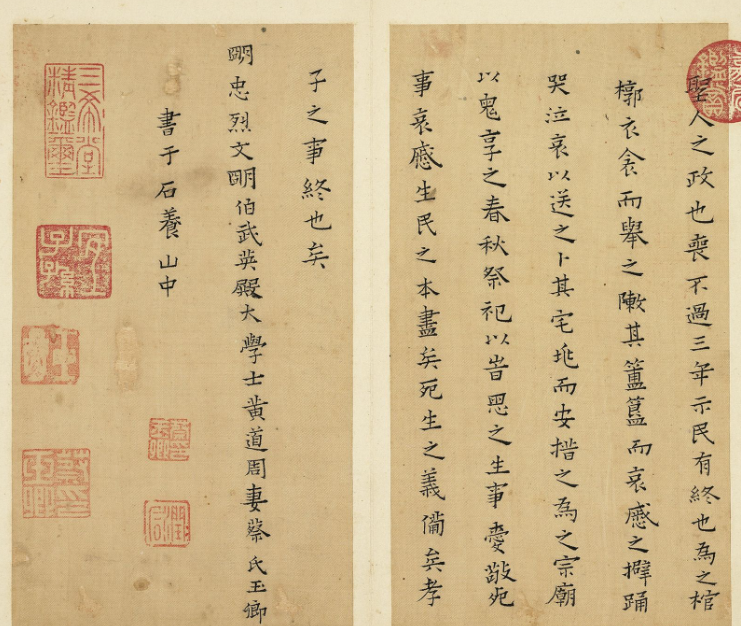 聖人之政也喪不過三年示民有終也為之棺
槨衣衾而舉之陳其簠簋而哀慼之擗踊
哭泣哀以送之卜其宅兆而安措之為之宗廟
以鬼享之春秋祭祀以旹思之生事愛敬死
事哀慼生民之本盡矣死生之義備矣孝
子之事終也矣
明忠烈文明伯武英殿大學士黃道周妻蔡氏玉卿
書于石養山中
三希堂
精鑑璽